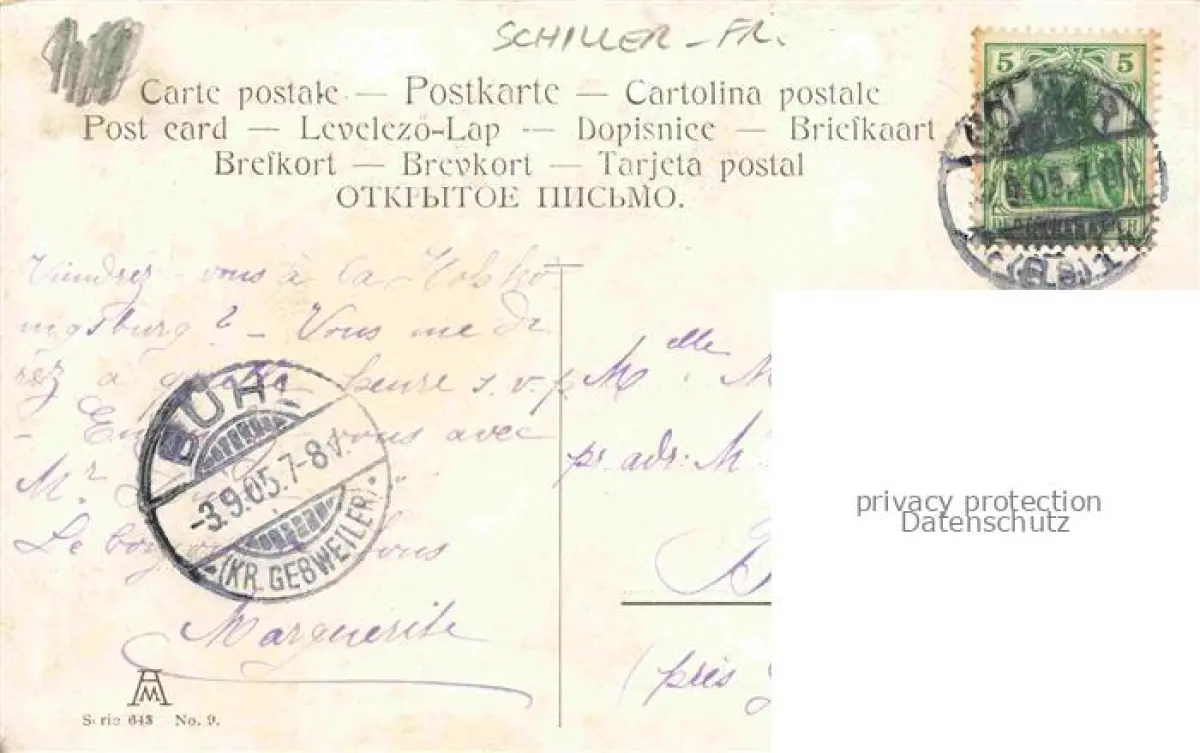 SCHILLER – FR.
Carte postale — Postkarte — Cartolina postale
Post card — Levelező-Lap — Dopisnice — Briefkaart
Brefkort — Brevkort — Tarjeta postal
ОТКРЫТОЕ ПИСЬМО.
5 5
5.05.7
(ELS) 1
Viendrez-vous à la Hohkö-
nigsburg? – Vous me di-
rez à heure s.v.p.
– vous avec
Mr
Le vous
Marguerite
BÜHL
-3.9.05.7-8V.
(KR. GEBWEILER)
Melle M
pr. adr: M
(près
privacy protection
Datenschutz
AM
Serie 643 No. 9.